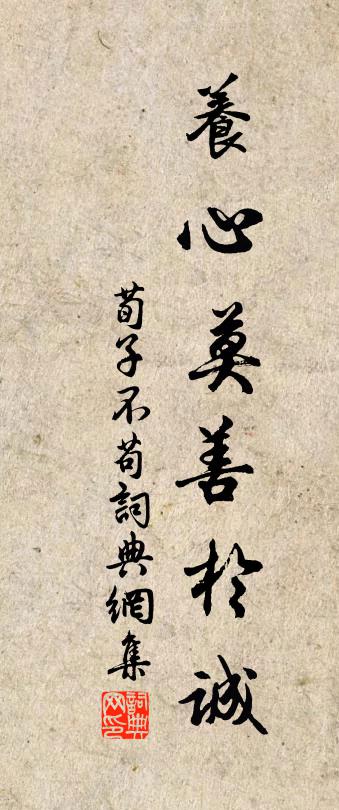 養心莫善於誠
荀子不苟詞典網集
詞典网印